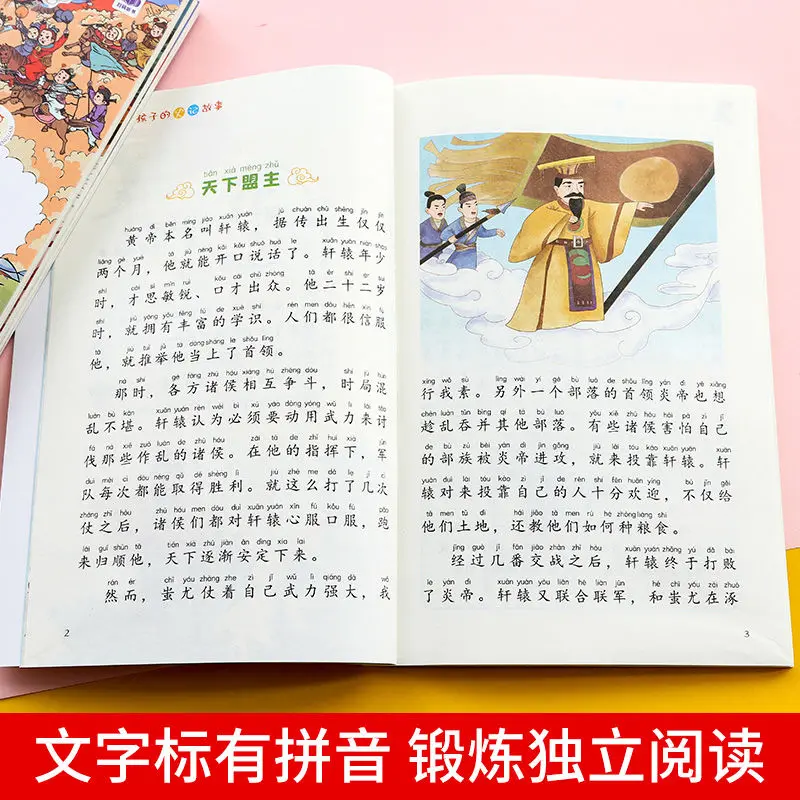 孩子的史记故事
tiān xià méng zhǔ
天下盟主
huáng dì běn míng jiào xuān yuán jù chuán chū shēng jǐn jǐn
黄帝本名叫轩辕，据传出生仅仅
liǎng gè yuè tā jiù néng kāi kǒu shuō huà le xuān yuán nián shào
两个月，他就能开口说话了。轩辕年少
shí cái sī mǐn ruì kǒu cái chū zhòng tā èr shí èr suì
时，才思敏锐、口才出众。他二十二岁
shí jiù yōng yǒu fēng fù de xué shí rén men dōu hěn xìn fú
时，就拥有丰富的学识。人们都很信服
tā jiù tuī jǔ tā dāng shàng le shǒu lǐng
他，就推举他当上了首领。
nà shí gè fāng zhū hóu xiāng hù zhēng dòu shí jú hùn
那时，各方诸侯相互争斗，时局混
luàn bù kān xuān yuán rèn wéi bì xū yào dòng yòng wǔ lì lái tǎo
乱不堪。轩辕认为必须要动用武力来讨
fá nà xiē zuò luàn de zhū hóu zài tā de zhǐ huī xià jūn
伐那些作乱的诸侯。在他的指挥下，军
duì měi cì dōu néng qǔ dé shèng lì jiù zhè me dǎ le jǐ cì
队每次都能取得胜利。就这么打了几次
zhàng zhī hòu zhū hóu men dōu duì xuān yuán xīn fú kǒu fú pǎo
仗之后，诸侯们都对轩辕心服口服，跑
lái guī shùn tā tiān xià zhú jiàn ān dìng xià lái
来归顺他，天下逐渐安定下来。
rán ér chī yóu zhàng zhe zì jǐ wǔ lì qiáng dà wǒ
然而，蚩尤仗着自己武力强大，我
2
xíng wǒ sù lìng wài yí gè bù luò de shǒu lǐng yán dì yě xiǎng
行我素。另外一个部落的首领炎帝也想
chèn luàn tūn bìng qí tā bù luò yǒu xiē zhū hóu hài pà zì jǐ
趁乱吞并其他部落。有些诸侯害怕自己
de bù zú bèi yán dì jìn gōng jiù lái tóu kào xuān yuán xuān
的部族被炎帝进攻，就来投靠轩辕。轩
yuán duì lái tóu kào zì jǐ de rén shí fēn huān yíng bù jǐn gěi
辕对来投靠自己的人十分欢迎，不仅给
tā men tǔ dì hái jiāo tā men rú hé zhòng liáng shi
他们土地，还教他们如何种粮食。
jīng guò jǐ fān jiāo zhàn zhī hòu xuān yuán zhōng yú dǎ bài
经过几番交战之后，轩辕终于打败
le yán dì xuān yuán yòu lián hé lián jūn hé chī yóu zài zhuō
了炎帝。轩辕又联合联军，和蚩尤在涿
3
文字标有拼音 锻炼独立阅读